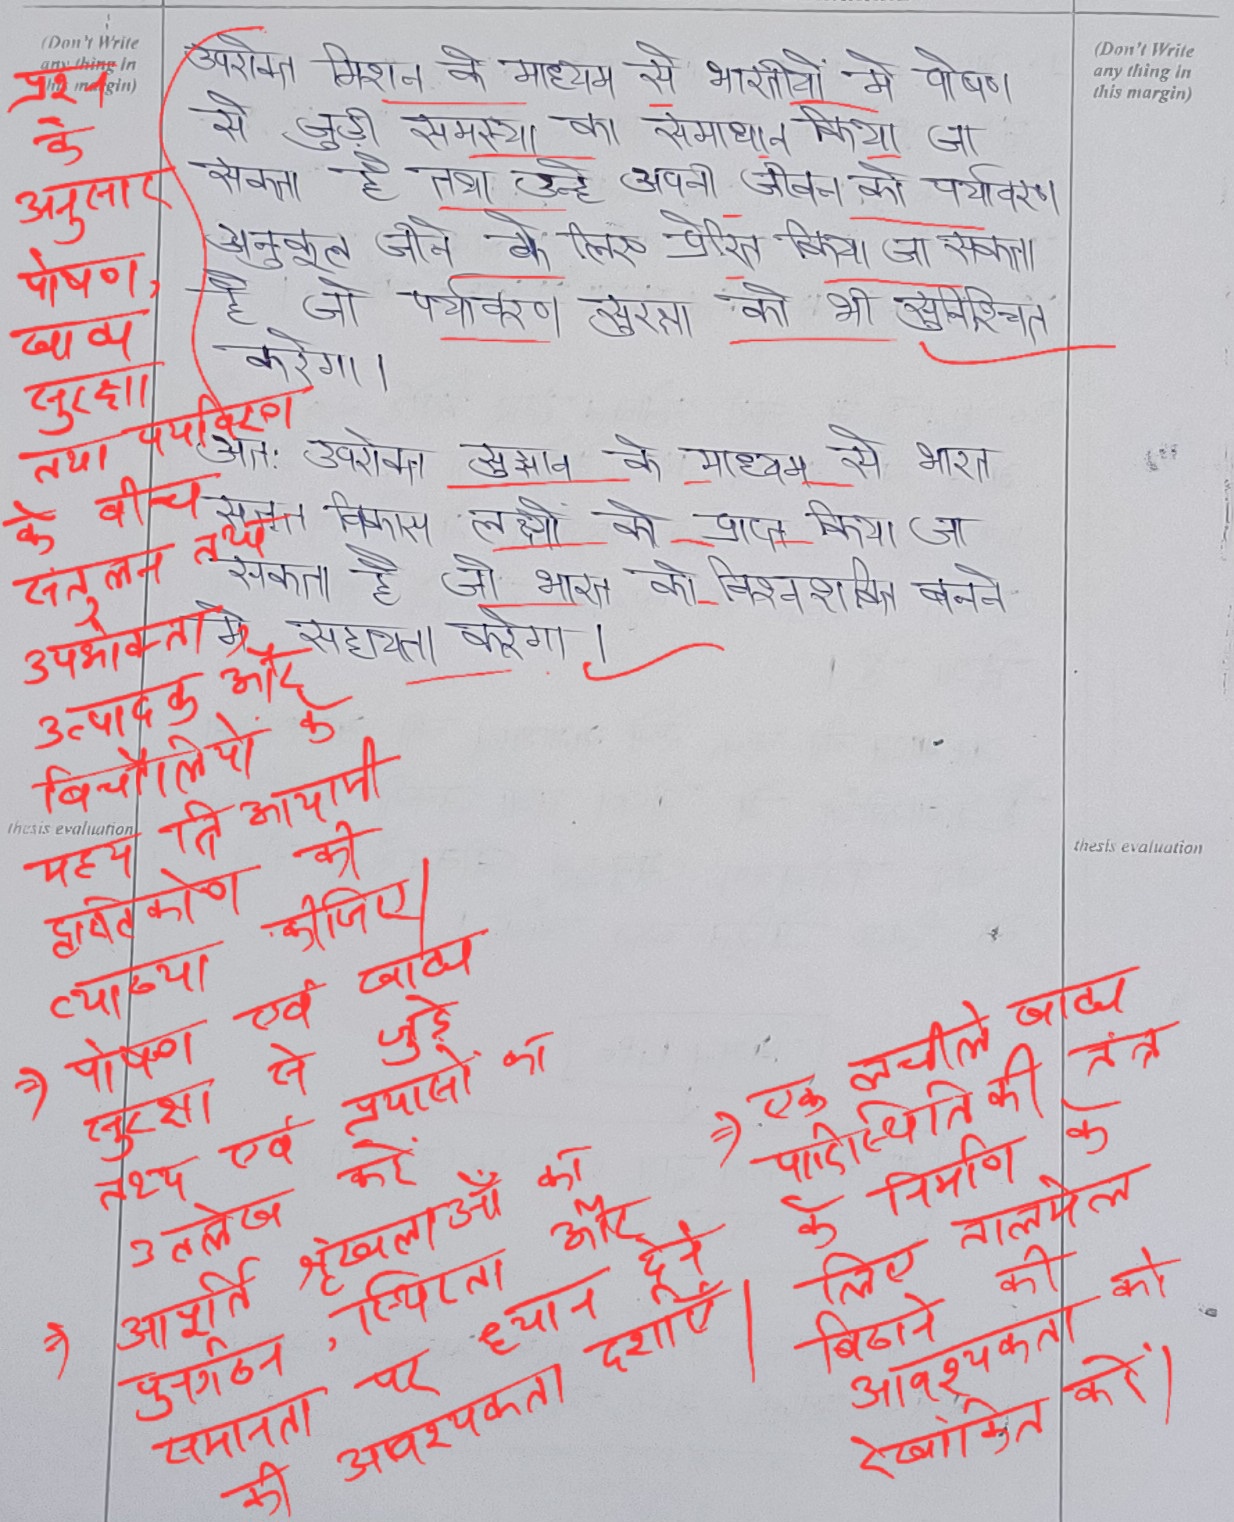 (Don't Write
any thing in
this margin)
(Don't Write
any thing in
this margin)
उपरोक्त मिशन के माध्यम से भारतीयों मे पोषण
से जुड़ी समस्या का समाधान किया जा
सकता है तथा उन्हे अपनी जीवन को पर्यावरण
अनुकूल जीने के लिए प्रेरित किया जा सकता
है जो पर्यावरण सुरक्षा को भी सुनिश्चित
करेगा।
अतः उपरोक्त सुझाव के माध्यम से भारत
सतत विकास लक्ष्यों को प्राप्त किया जा
सकता है जो भारत को विश्वशक्ति बनने
मे सहायता करेगा।
प्रश्न
के
अनुसार
पोषण,
खाद्य
सुरक्षा
तथा पर्यावरण
के बीच
संतुलन तथा
उपभोक्ता,
उत्पादक और
बिचौलियों के
मध्य त्रि आयामी
दृष्टिकोण की
व्याख्या कीजिए।
⇒ पोषण एवं खाद्य
सुरक्षा से जुड़े
तथ्य एवं प्रयासों का
उल्लेख करें
⇒ आपूर्ति श्रृंखलाओं का
पुनर्गठन, स्थिरता और
समानता पर ध्यान देने
की आवश्यकता दर्शाएँ।
⇒ एक लचीले खाद्य
पारिस्थितिकी तंत्र
के निर्माण के
लिए तालमेल
बिठाने की
आवश्यकता को
रेखांकित करें।
thesis evaluation
thesis evaluation